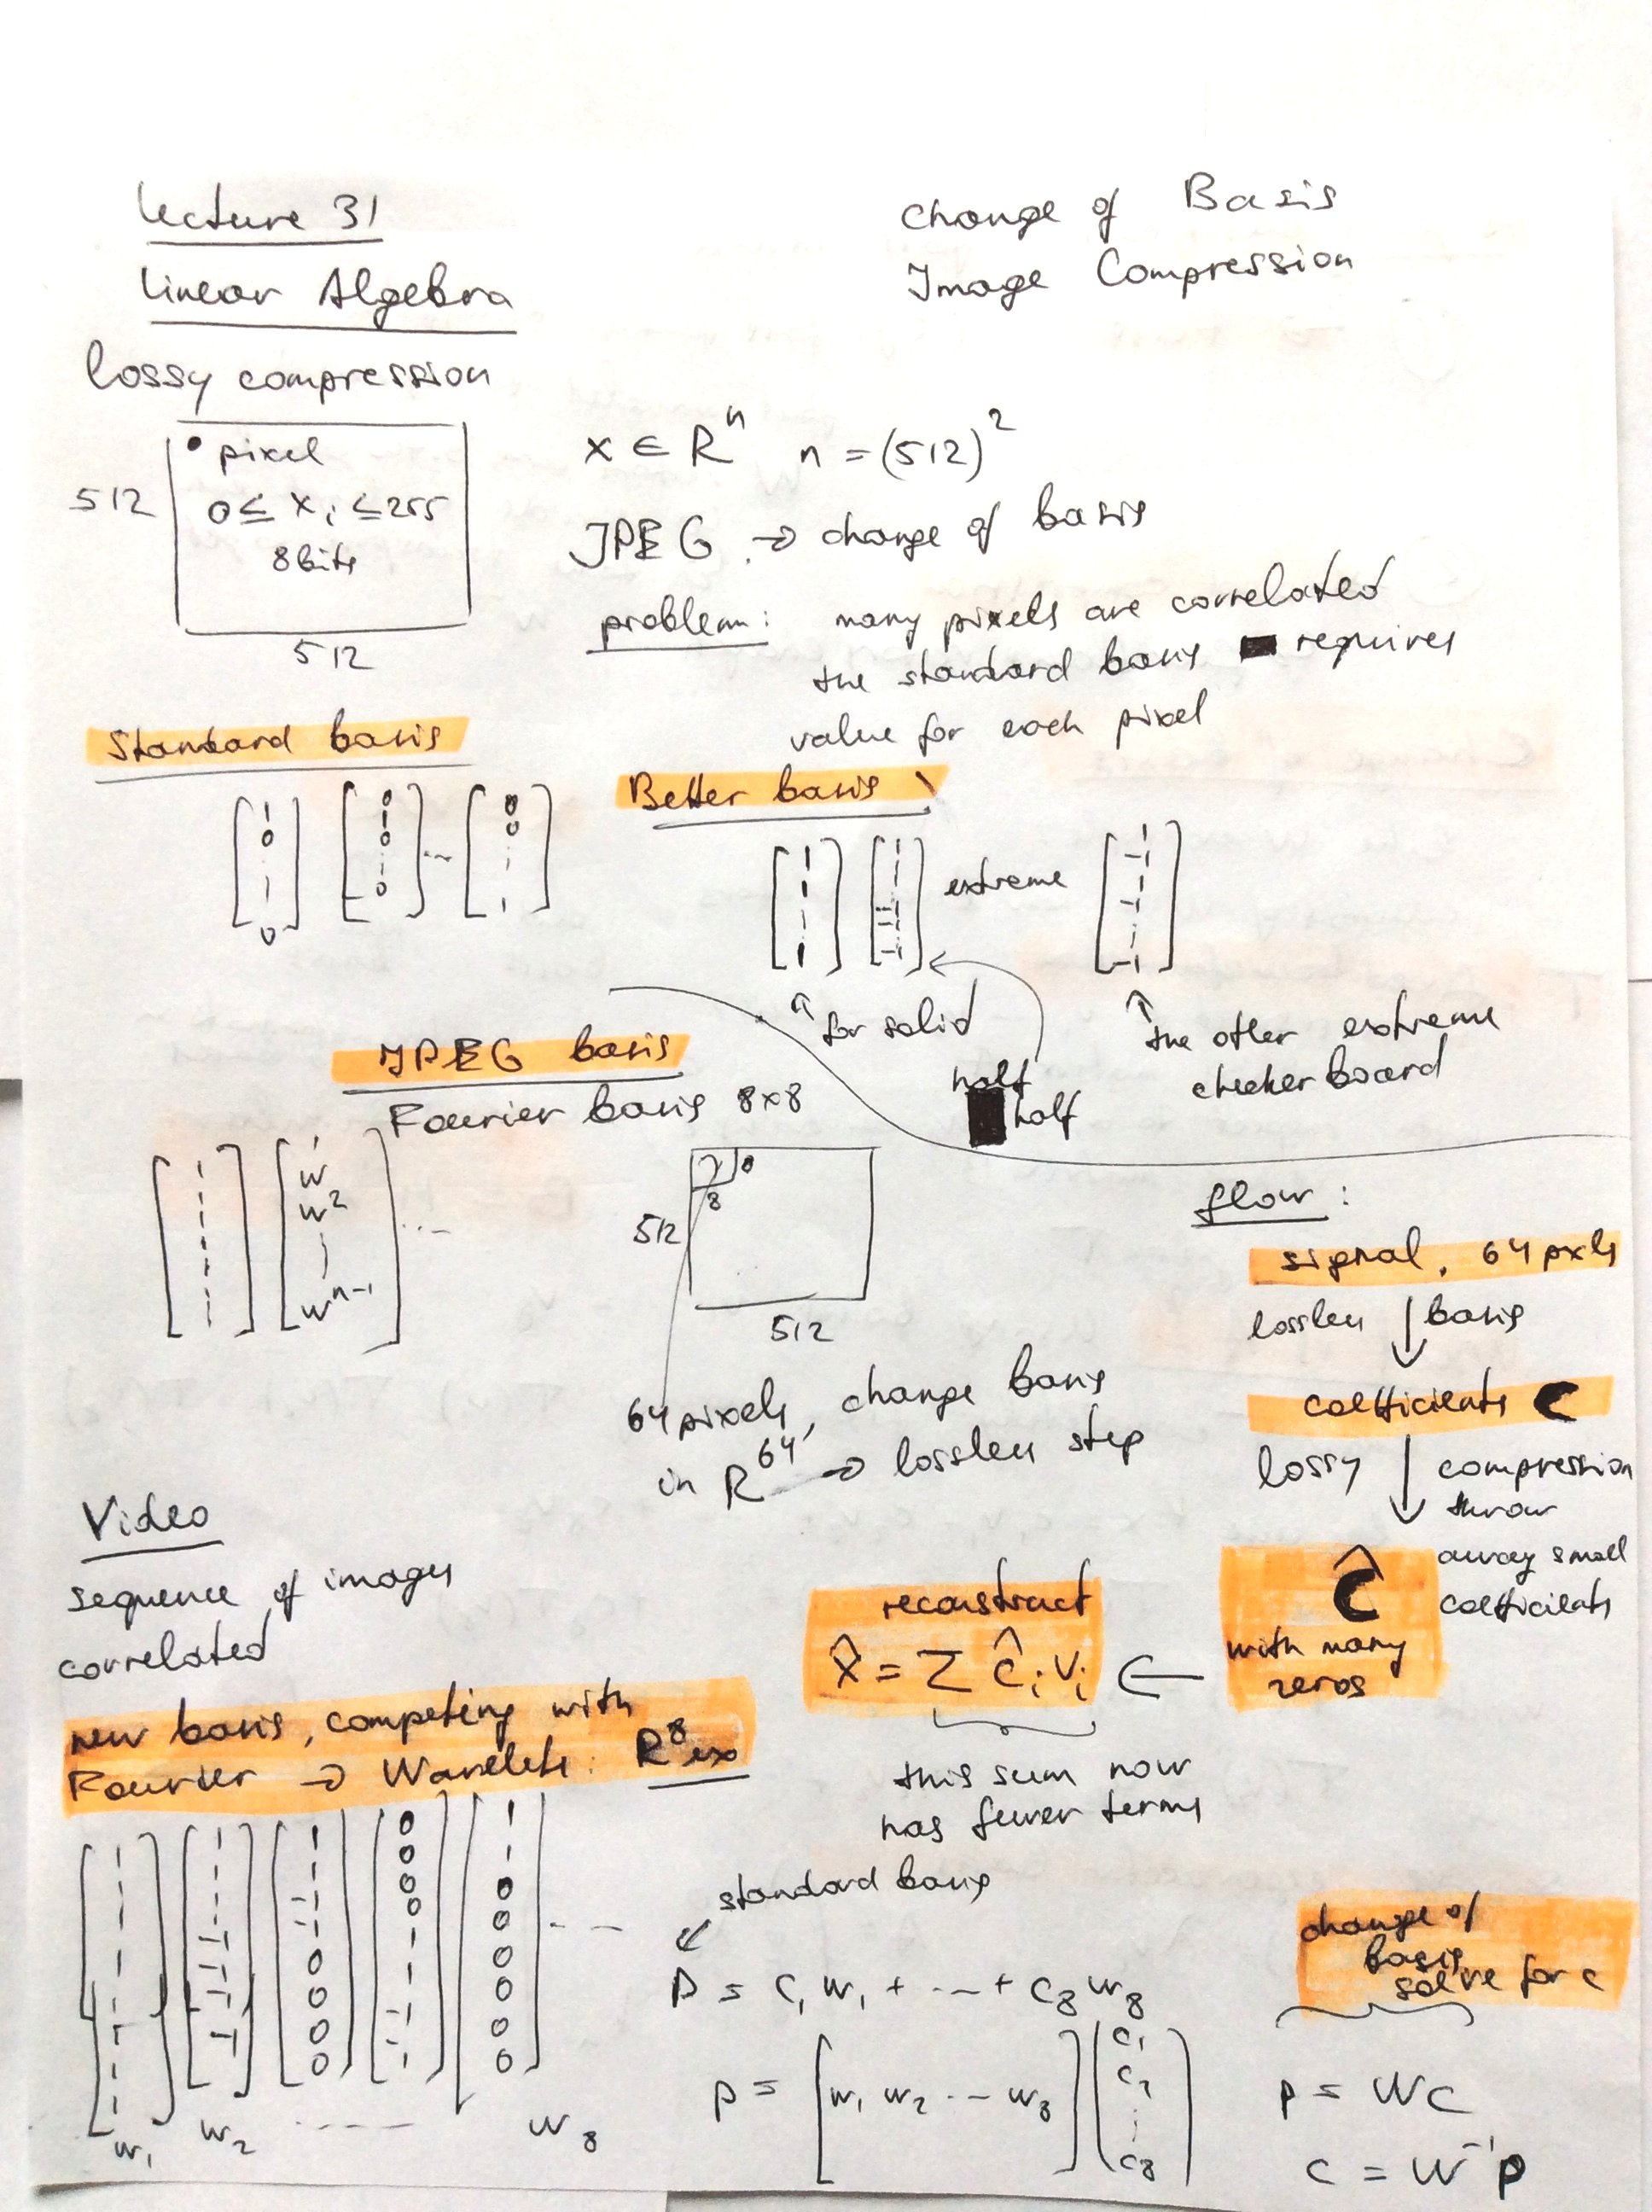 Lecture 31
Linear Algebra
Change of Basis
Image Compression
lossy compression
• pixel
0 ≤ xᵢ ≤ 255
8 bits
512
512
x ∈ Rⁿ n = (512)²
JPEG → change of basis
problem: many pixels are correlated
the standard basis requires
value for each pixel
Standard basis
[1 0 ⋮ 0] [0 1 0 ⋮ 0] ... [0 0 ⋮ 1]
Better basis
[1 1 ⋮ 1] [1 1 ⋮ -1 -1] extreme [1 -1 1 -1 1 -1]
↑ for solid
half
half
↑ the other extreme
checkerboard
JPEG basis
Fourier basis 8×8
[1 1 ⋮ 1] [1 w w² ⋮ wⁿ⁻¹] ...
8
8
512
512
64 pixels, change basis
in R⁶⁴ → lossless step
flow:
signal, 64 pxls
lossless ↓ basis
coefficients c
lossy ↓ compression
throw
away small
coefficients
ĉ
with many
zeros
reconstruct
x̂ = Σ ĉᵢ vᵢ ←
this sum now
has fewer terms
Video
sequence of images
correlated
new basis, competing with
Fourier → Wavelets. R⁸ ex
[1 1 1 1 1 1 1 1] [1 1 1 1 -1 -1 -1 -1] [1 1 -1 -1 0 0 0 0] [0 0 0 0 1 1 -1 -1] [1 -1 0 0 0 0 0 0] ...
w₁ w₂ ..... w₈
standard basis
P = c₁w₁ + ... + c₈w₈
p = [w₁ w₂ ... w₈] [c₁ c₂ ⋮ c₈]
change of
basis,
solve for c
p = Wc
c = W⁻¹p